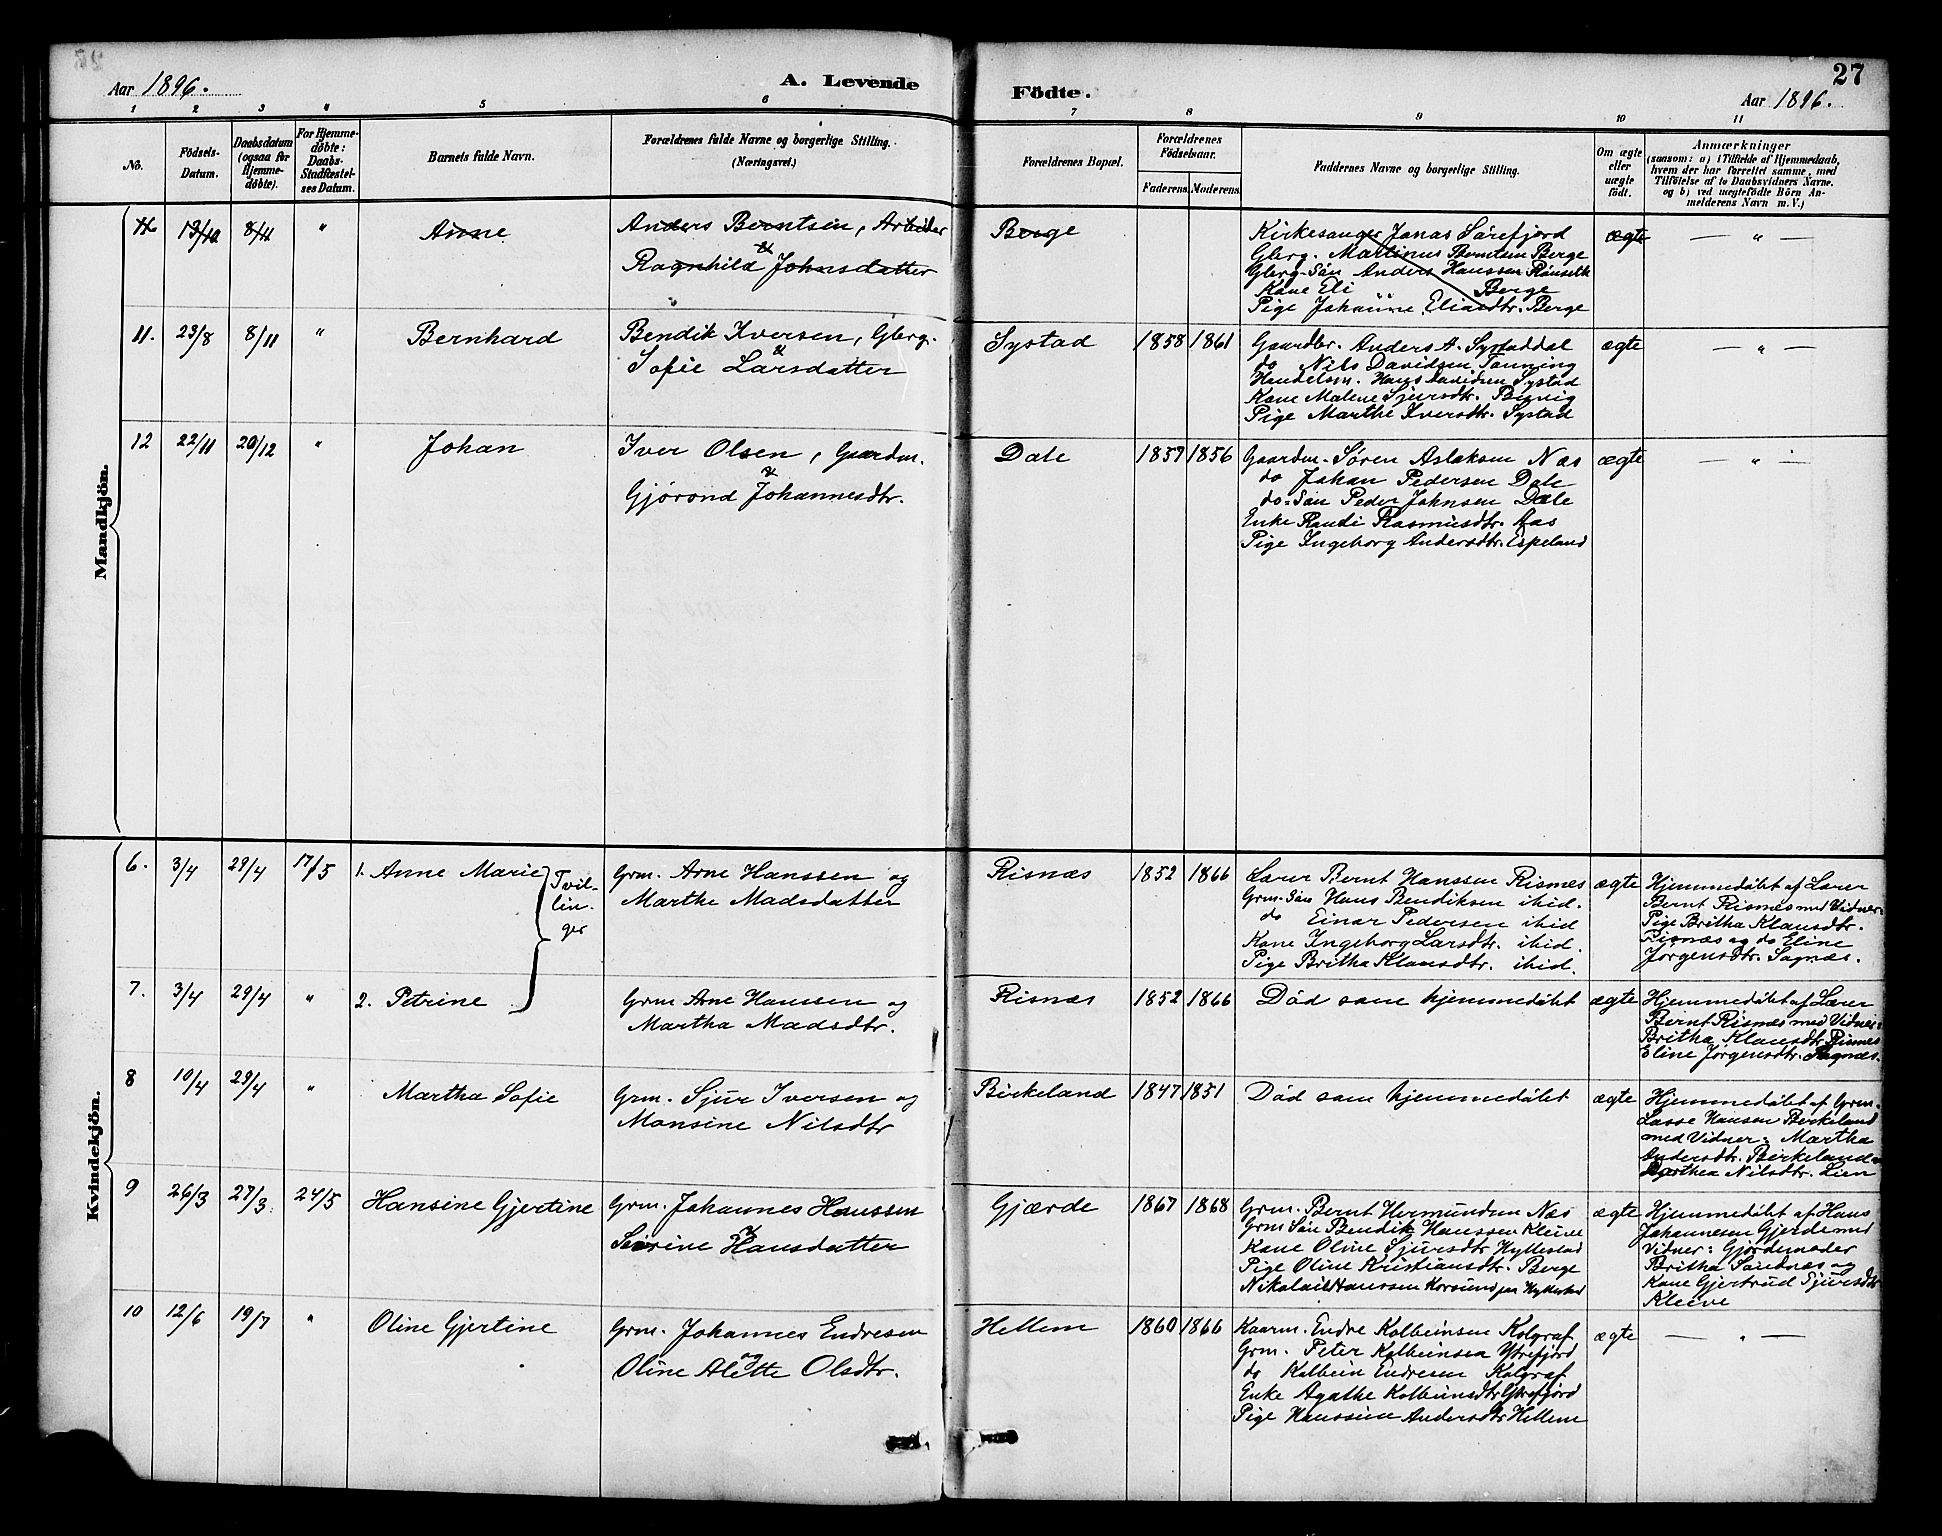 Aar 1896.
A. Levende
Födte.
27
Aar 1896.
1 2 3 4 5 6 7 8 9 10 11
No.
Födsels-Datum.
Daabsdatum (ogsaa for Hjemme-döbte).
For Hjemme-döbte: Daabs-Stadfæstel-ses Datum.
Barnets fulde Navn.
Forældrenes fulde Navne og borgerlige Stilling. (Næringsvei.)
Forældrenes Bopæl.
Forældrenes Födselsaar.
Faderens. Moderens.
Faddernes Navne og borgerlige Stilling.
Om ægte eller uægte födt.
Anmærkninger
(saasom: a) i Tilfælde af Hjemmedaab, hvem der har forrettet samme, med Tilföielse af to Daabsvidners Navne. og b) ved uægtefödte Börn An-melderens Navn m. V.)
Mandkjön.
11 13/10 8/11 " Anne
Anders Berntsen, Arbeider
& Ragnhild Johnsdatter
Berge
Kirkesanger Jonas Sørefjord
Gbrg. Martinus Berntsen Berge
Gbrg-Søn Anders Hanssen
Kone Eli Berge
Pige Johanne Eliasdtr. Berge
ægte — " —
11. 23/8 8/11 " Bernhard
Bendik Iversen, Gbrg.
& Sofie Larsdatter
Systad 1858 1861
Gaardbr. Anders A. Systaddal
do Nils Davidsen Tonning
Handelsm. Hans Davidsen Systad
Kone Malene Sjursdtr.
Pige Marthe Iversdtr. Systad
ægte — " —
12 22/11 20/12 " Johan
Iver Olsen, Gaardm.
& Gjørond Johannesdtr.
Dale 1857 1856
Gaardm. Søren Aslaksen Næs
do Johan Pedersen Dale
do-Søn Peder Johnsen Dale
Enke Randi Rasmusdtr. Aas
Pige Ingeborg Andersdtr. Espeland
ægte — " —
Kvindekjön.
6. 3/4 29/4 17/5 1. Anne Marie
Tvil-
lin-
ger
Grm. Arne Hanssen og
Marthe Madsdatter
Risnæs 1852 1866
Lærer Bernt Hanssen Risnæs
Grm-Søn Hans Bendiksen ibid.
do Einar Pedersen ibid
Kone Ingeborg Larsdtr. ibid.
Pige Britha Klausdtr. ibid.
ægte
Hjemmedøbt af Lærer
Bernt Risnæs med Vidner:
Pige Britha Klausdtr.
Risnæs og do Eline
Jørgensdtr. Sognæs.
7. 3/4 29/4 " 2. Petrine
Grm Arne Hanssen og
Martha Madsdtr.
Risnæs 1852 1866
Død som hjemmedøbt
ægte
Hjemmedøbt af Lærer
Bernt Risnæs med Vidner:
Britha Klausdtr. Risnæs
Eline Jørgensdtr. Sognæs.
8 10/4 29/4 " Martha Sofie
Grm. Sjur Iversen og
Monsine Nilsdtr
Birkeland 1847 1851
Død som hjemmedøbt
ægte
Hjemmedøbt af Grm.
Lasse Hansen Birkeland
med Vidner: Martha
Andersdtr. Birkeland
Dorthea Nilsdtr. Lien
9 26/3 27/3 24/5 Hansine Gjertine
Grm. Johannes Hanssen
& Sørine Hansdatter
Gjærde 1867 1868
Grm. Bernt Hermundsen Næs
Grm Søn Bendik Hanssen Kleive
Kone Oline Sjursdtr Hyllestad
Pige Oline Kristiansdtr. Berge
Nikolai Hanssen Hyllestad
ægte
Hjemmedøbt af Hans
Johannesen Gjerde med
Vidner: Gjordemoder
Britha Sandnæs og
Kone Gjertrud Sjursdtr
Kleive
10 12/6 19/7 " Oline Gjertine
Grm. Johannes Endresen
og Oline Alette Olsdtr.
Hellem 1860 1866
Kaarm. Endre Kolbeinsen Kolgraf
Grm. Peter Kolbeinsen Ytrefjord
do Kolbein Endresen Kolgraf
Enke Agathe Kolbeinsdtr Ytrefjord
Pige Hanssine Andersdtr Hellem
ægte — " —